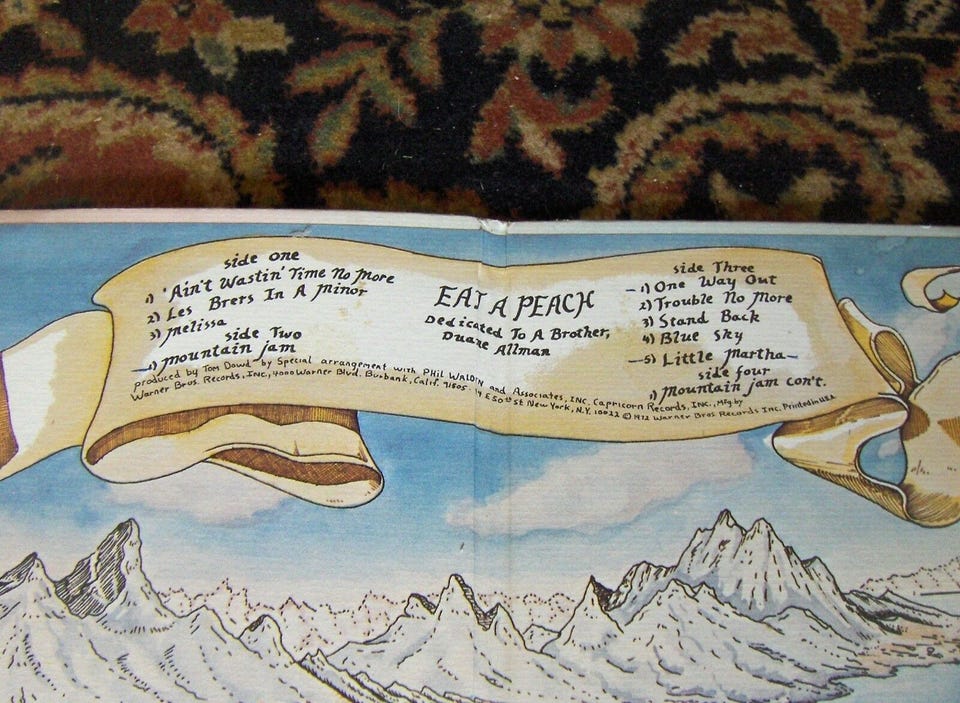 side one
1) 'Ain't Wastin' Time No More
2) Les Brers In A minor
3) melissa
side Two
1) mountain jam
EAT A PEACH
Dedicated To A Brother,
Duane Allman
side Three
1) One Way Out
2) Trouble No More
3) Stand Back
4) Blue Sky
5) Little Martha
side four
1) mountain jam con't.
produced by Tom Dowd by Special arrangement with Phil Waldin and Associates, INC. Capricorn Records, INC., Mfg. by
Warner Bros. Records, INC., 4000 Warner Blvd. Burbank, Calif. 91505. E 50th St New York, N.Y. 10022 © 1972 Warner Bros Records Inc. Printed in USA